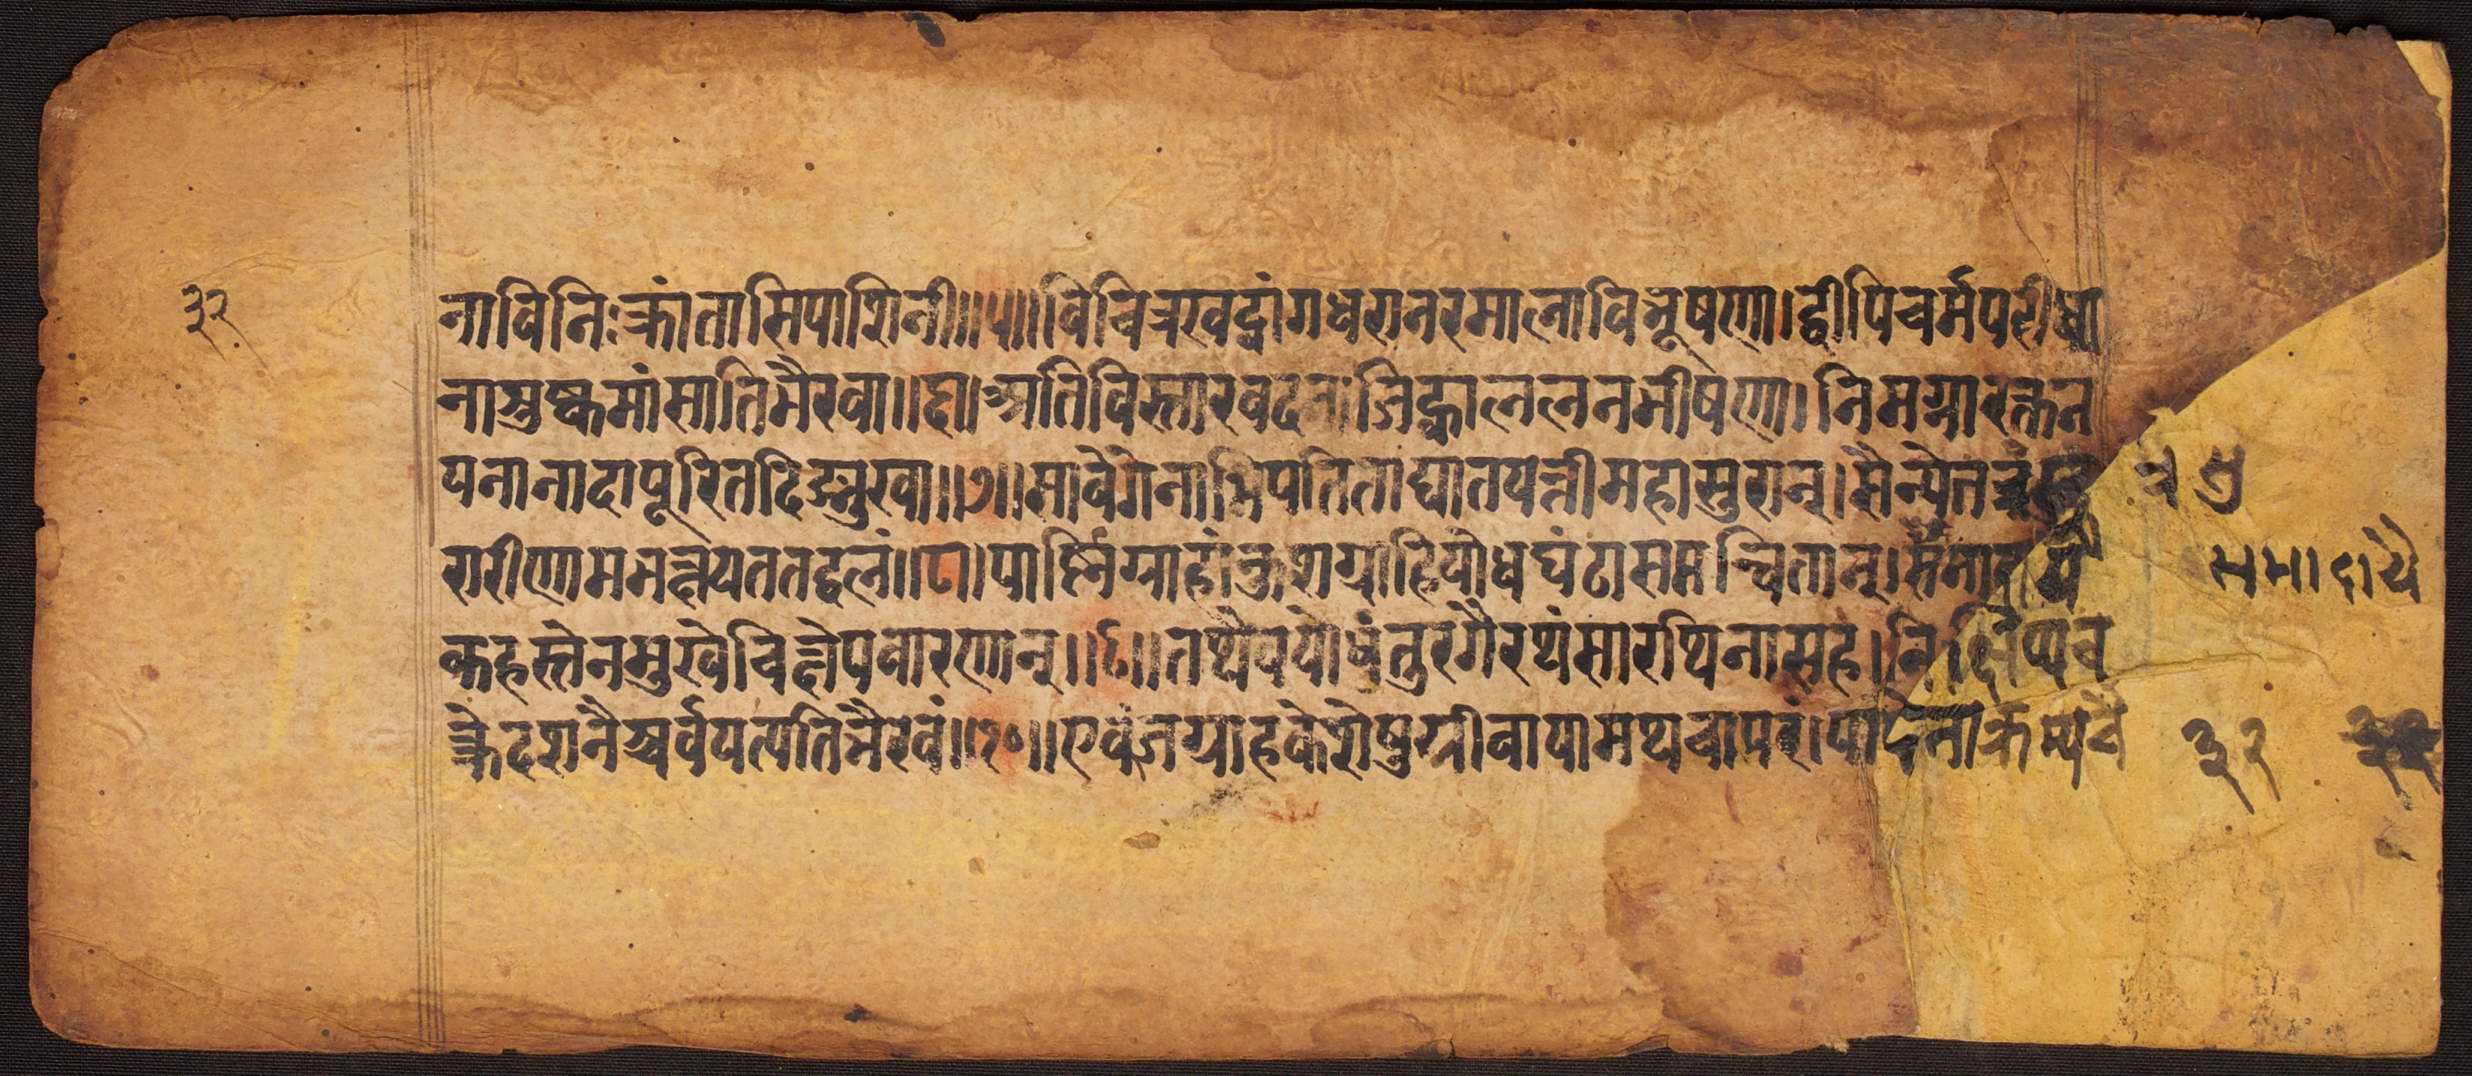 ३२
नाविनिःक्रांतासिपाशिनी॥५॥विचित्रखट्वांगधरानरमालाविभूषणा।द्वीपिचर्मपरीधा
नाशुष्कमांसातिभैरवा॥६॥अतिविस्तारवदनाजिह्वाललनभीषणा।निमग्नारक्तन
यनानादापूरितदिङ्मुखा॥७॥सावेगेनाभिपतिताघातयन्तीमहासुरान्।सैन्येतत्रसु
रारीणामभक्षयततद्बलं॥८॥पार्ष्णिग्राहांकुशग्राहियोधघंटासमन्वितान्।समादायै
कहस्तेनमुखेचिक्षेपवारणान्॥९॥तथैवयोधंतुरगैरथंसारथिनासह।निक्षिप्यव
क्त्रेदशनैश्चर्वयत्यतिभैरवं॥१०॥एवंजग्राहकेशेषुग्रीवायामथचापरं।पादेनाक्रम्यचै
त्रसु
समादायै
३२